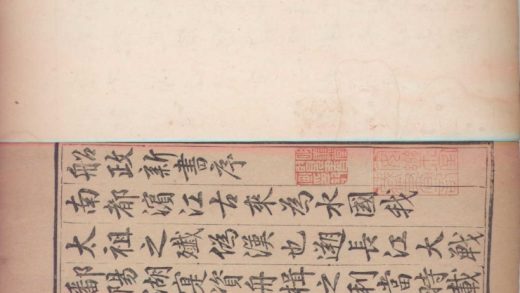 船政新書序
南都濱江古來為水國我
太祖之殲偽漢也遡長江大戰
鄱陽湖寔資舟楫之利當時載